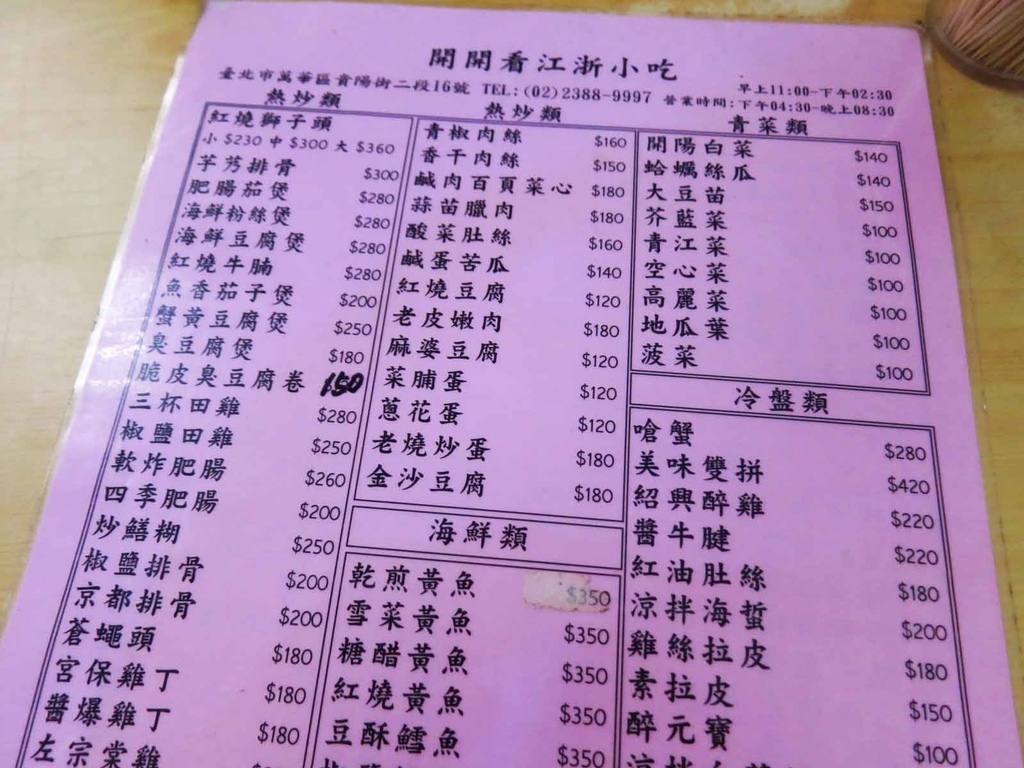 開開看江浙小吃
臺北市萬華區貴陽街二段16號 TEL:(02)2388-9997 營業時間:早上11:00-下午02:30
下午04:30-晚上08:30
熱炒類
紅燒獅子頭
小 $230 中 $300 大 $360
芋艿排骨 $300
肥腸茄煲 $280
海鮮粉絲煲 $280
海鮮豆腐煲 $280
紅燒牛腩 $280
魚香茄子煲 $200
蟹黃豆腐煲 $250
臭豆腐煲 $180
脆皮臭豆腐卷 150
三杯田雞 $280
椒鹽田雞 $250
軟炸肥腸 $260
四季肥腸 $200
炒鱔糊 $250
椒鹽排骨 $200
京都排骨 $200
蒼蠅頭 $180
宮保雞丁 $180
醬爆雞丁 $180
左宗棠雞
熱炒類
青椒肉絲 $160
香干肉絲 $150
鹹肉百頁菜心 $180
蒜苗臘肉 $180
酸菜肚絲 $160
鹹蛋苦瓜 $140
紅燒豆腐 $120
老皮嫩肉 $180
麻婆豆腐 $120
菜脯蛋 $120
蔥花蛋 $120
老燒炒蛋 $180
金沙豆腐 $180
海鮮類
乾煎黃魚 $350
雪菜黃魚 $350
糖醋黃魚 $350
紅燒黃魚 $350
豆酥鱈魚 $350
青菜類
開陽白菜 $140
蛤蠣絲瓜 $140
大豆苗 $150
芥藍菜 $100
青江菜 $100
空心菜 $100
高麗菜 $100
地瓜葉 $100
菠菜 $100
冷盤類
嗆蟹 $280
美味雙拼 $420
紹興醉雞 $220
醬牛腱 $220
紅油肚絲 $180
涼拌海蜇 $200
雞絲拉皮 $180
素拉皮 $150
醉元寶 $100
涼拌